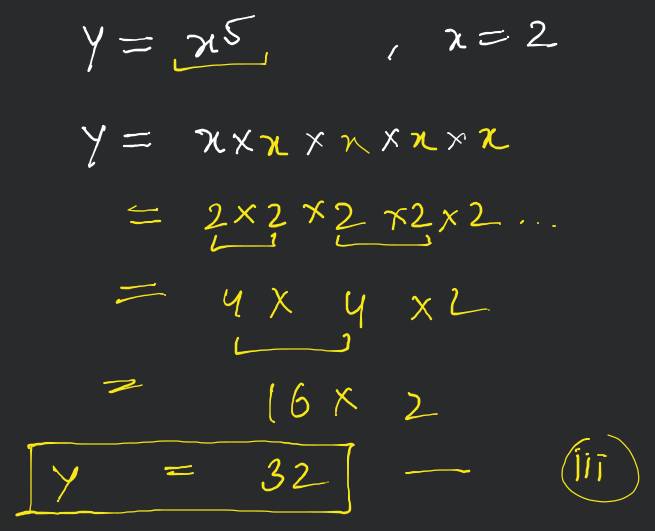 y = x⁵ , x = 2
y = x × x × x × x × x
= 2 × 2 × 2 × 2 × 2 ...
= 4 × 4 × 2
= 16 × 2
y = 32 — iii